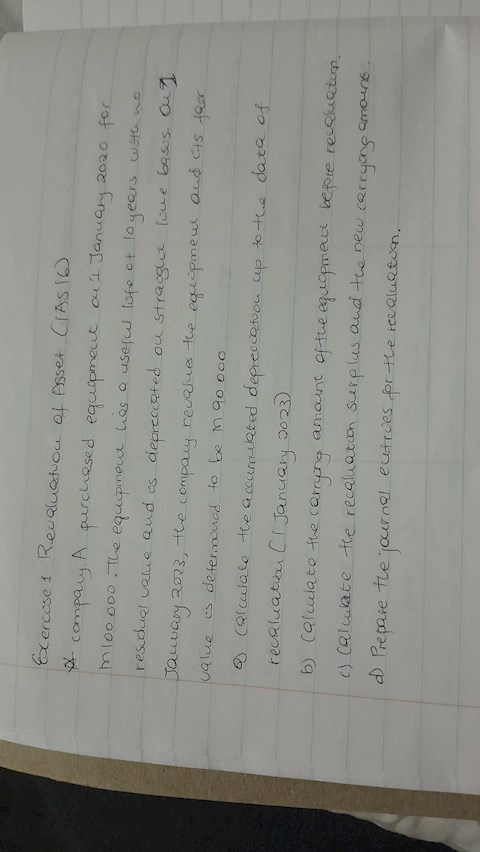 Exercise 1 Revaluation of Asset (IAS 16)
company A purchased equipment on 1 January 2020 for
M100 000. The equipment has a useful life of 10 years with no
residual value and is depreciated on straight line basis on 1
January 2023, the company revalues the equipment and its fair
value is determined to be M 90 000
a) Calculate the accumulated depreciation up to the data of
revaluation (1 January 2023)
b) Calculate the carrying amount of the equipment before revaluation.
c) Calculate the revaluation surplus and the new carrying amount.
d) Prepare the journal entries for the revaluation.